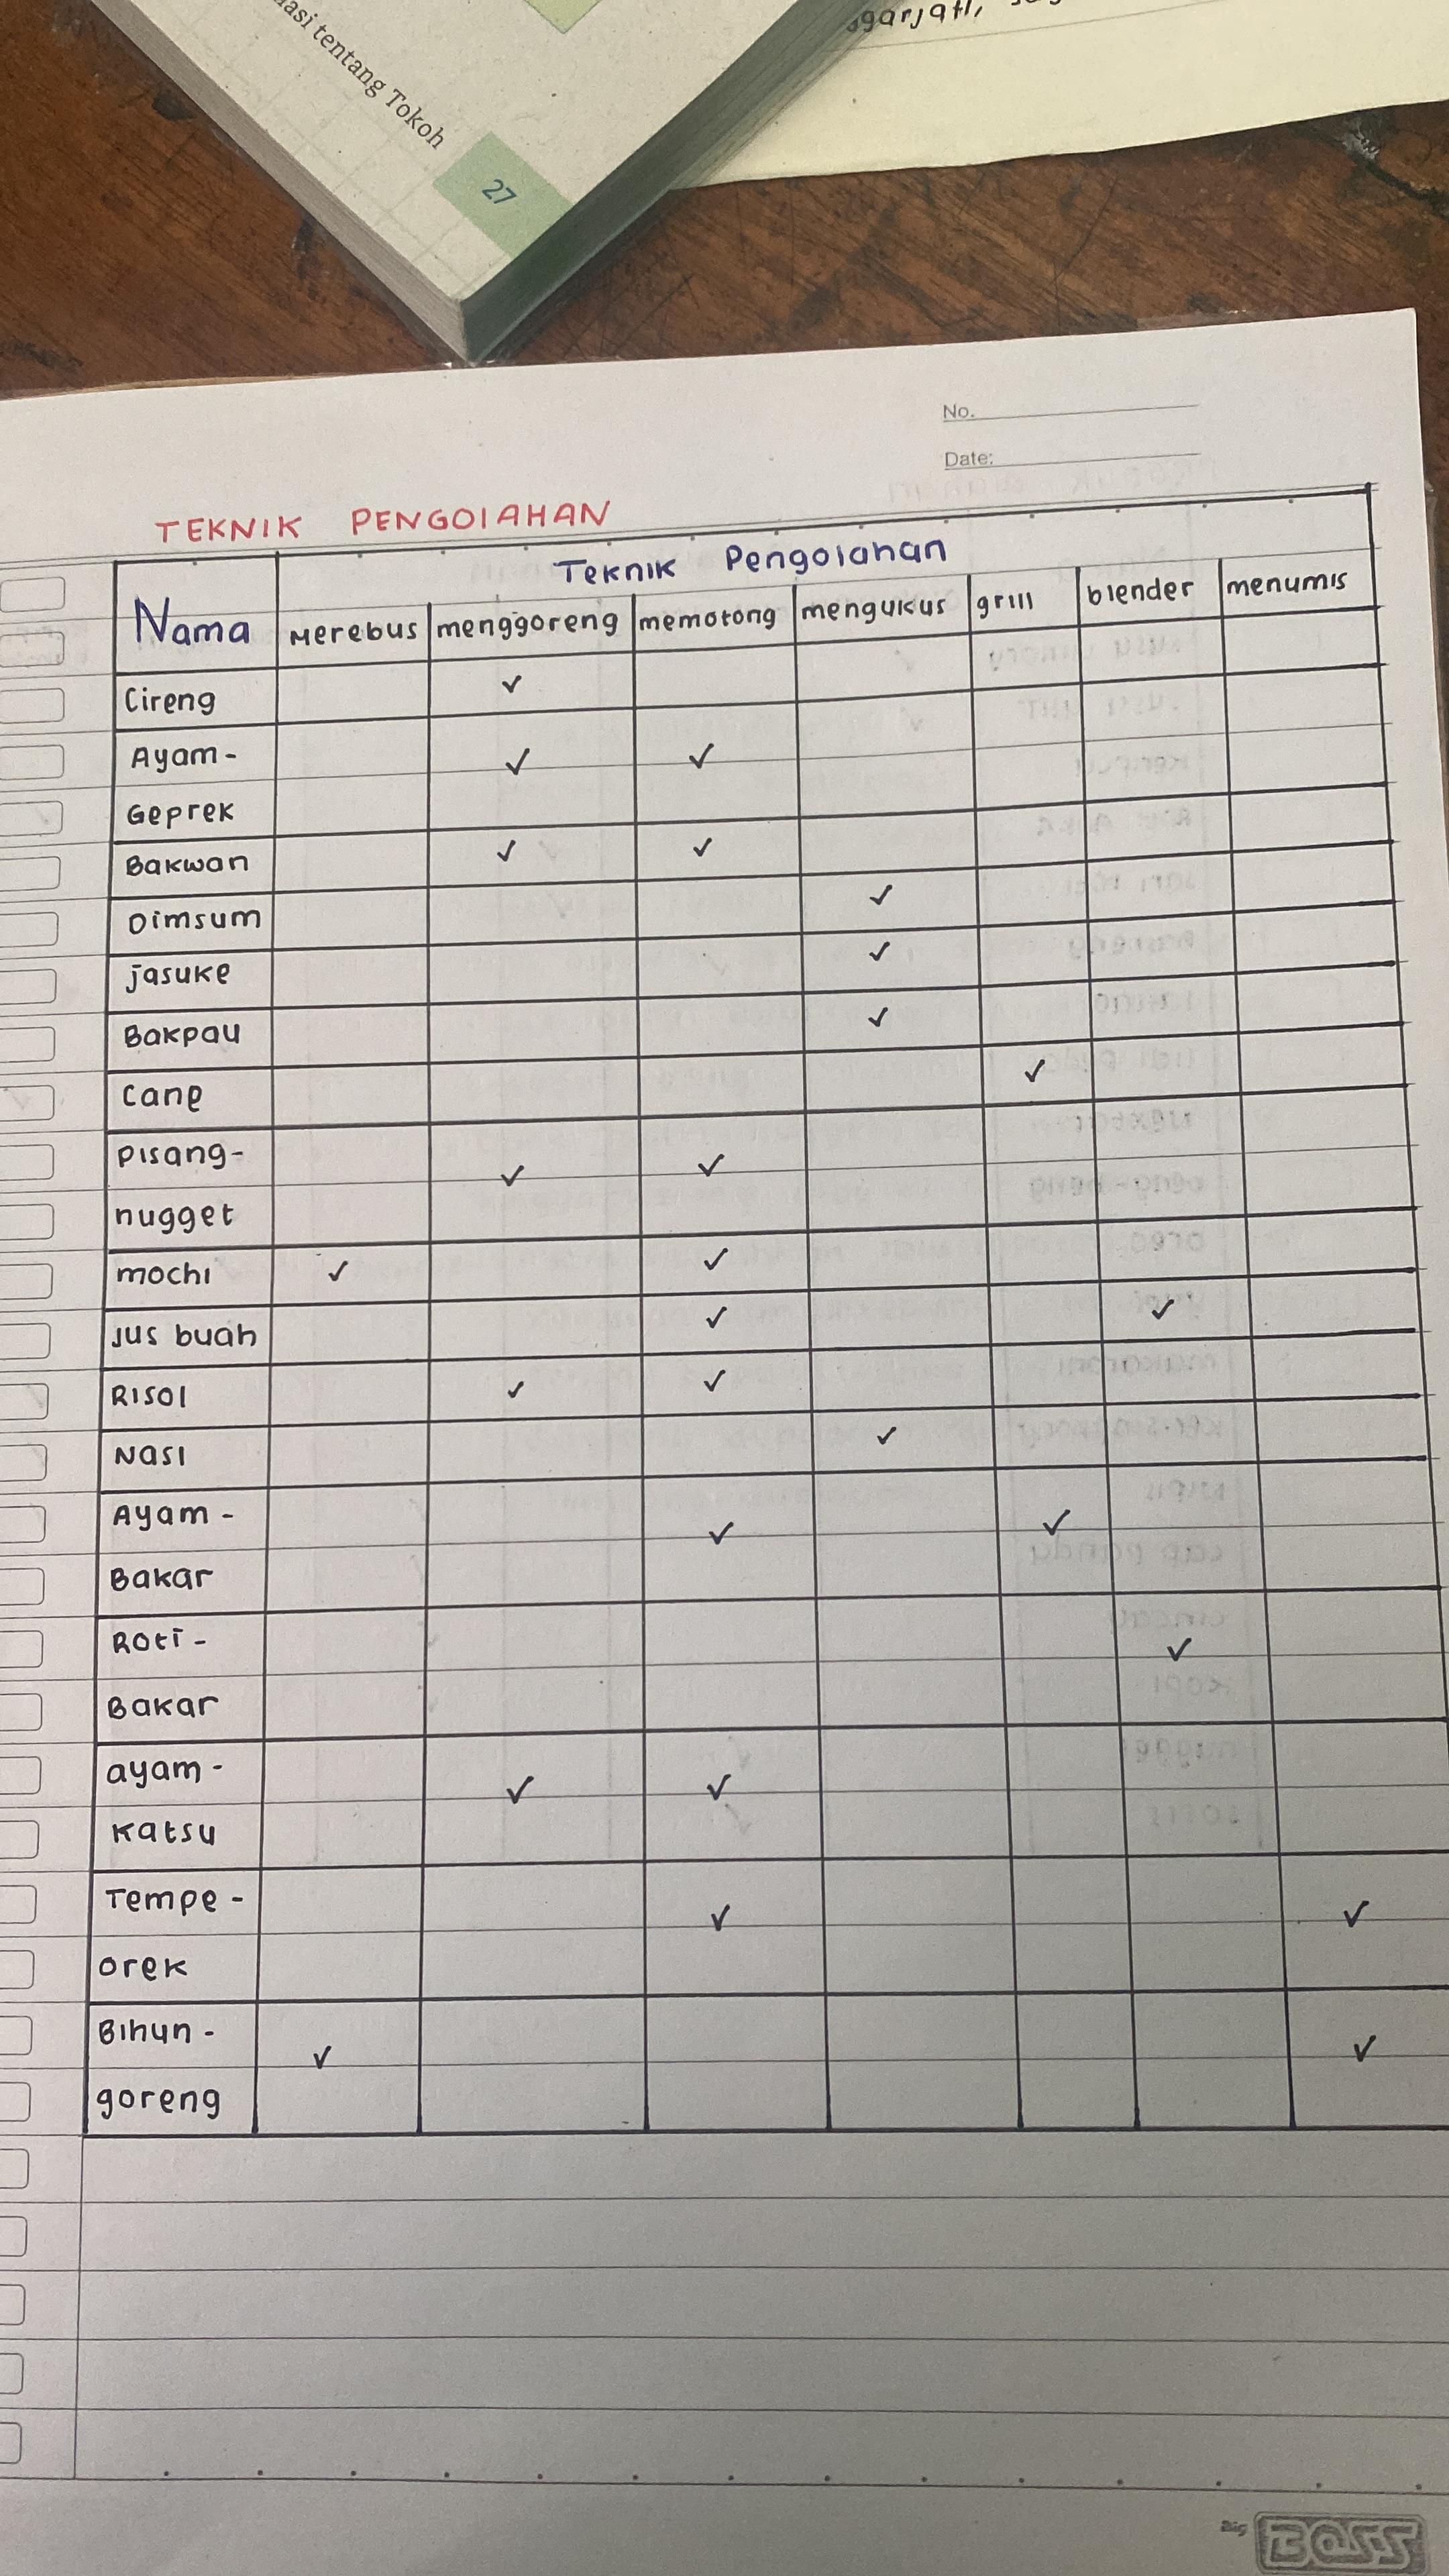 asi tentang Tokoh
27
garjati,
No.
Date:
TEKNIK PENGOLAHAN
Teknik Pengolahan
Nama Merebus menggoreng memotong mengukus grill blender menumis
Cireng ✓
Ayam- ✓ ✓
Geprek
Bakwan ✓ ✓
Dimsum ✓
jasuke ✓
Bakpau ✓
cane ✓
pisang- ✓ ✓
nugget
mochi ✓ ✓
jus buah ✓ ✓
Risol ✓ ✓
Nasi ✓
Ayam - ✓ ✓
Bakar
Roti - ✓
Bakar
ayam - ✓ ✓
katsu
Tempe - ✓ ✓
orek
Bihun - ✓ ✓
goreng
Big BOSS